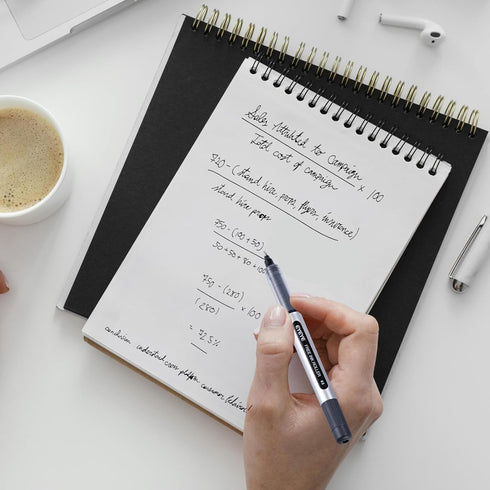 Sales Attributed to Campaign
Total cost of campaign x 100
720 - (stand hire, props, flyers, insurance)
stand, hire props
750 - (100 + 50)
50 + 50 + 80 + 100
750 - (280)
(280) x 100
= 72.5%
conclusion understand cross platform consumer behaviour